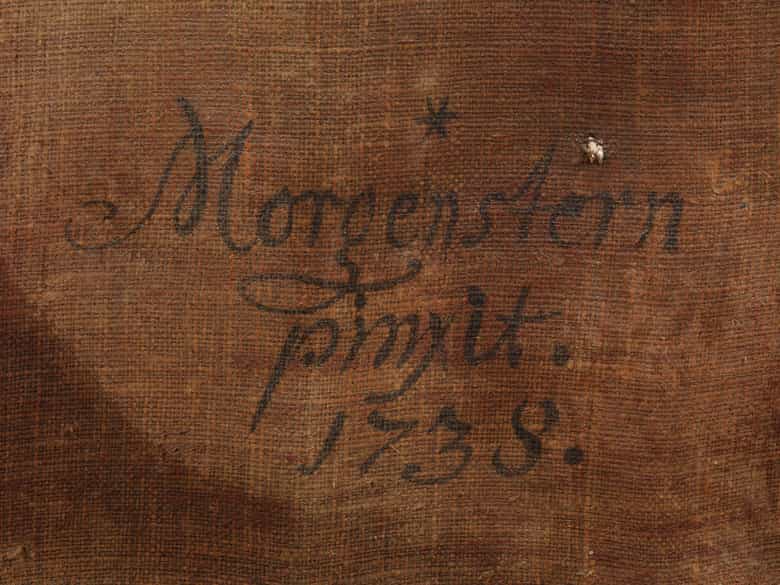 *
Morgenstern
pinxit.
1738.